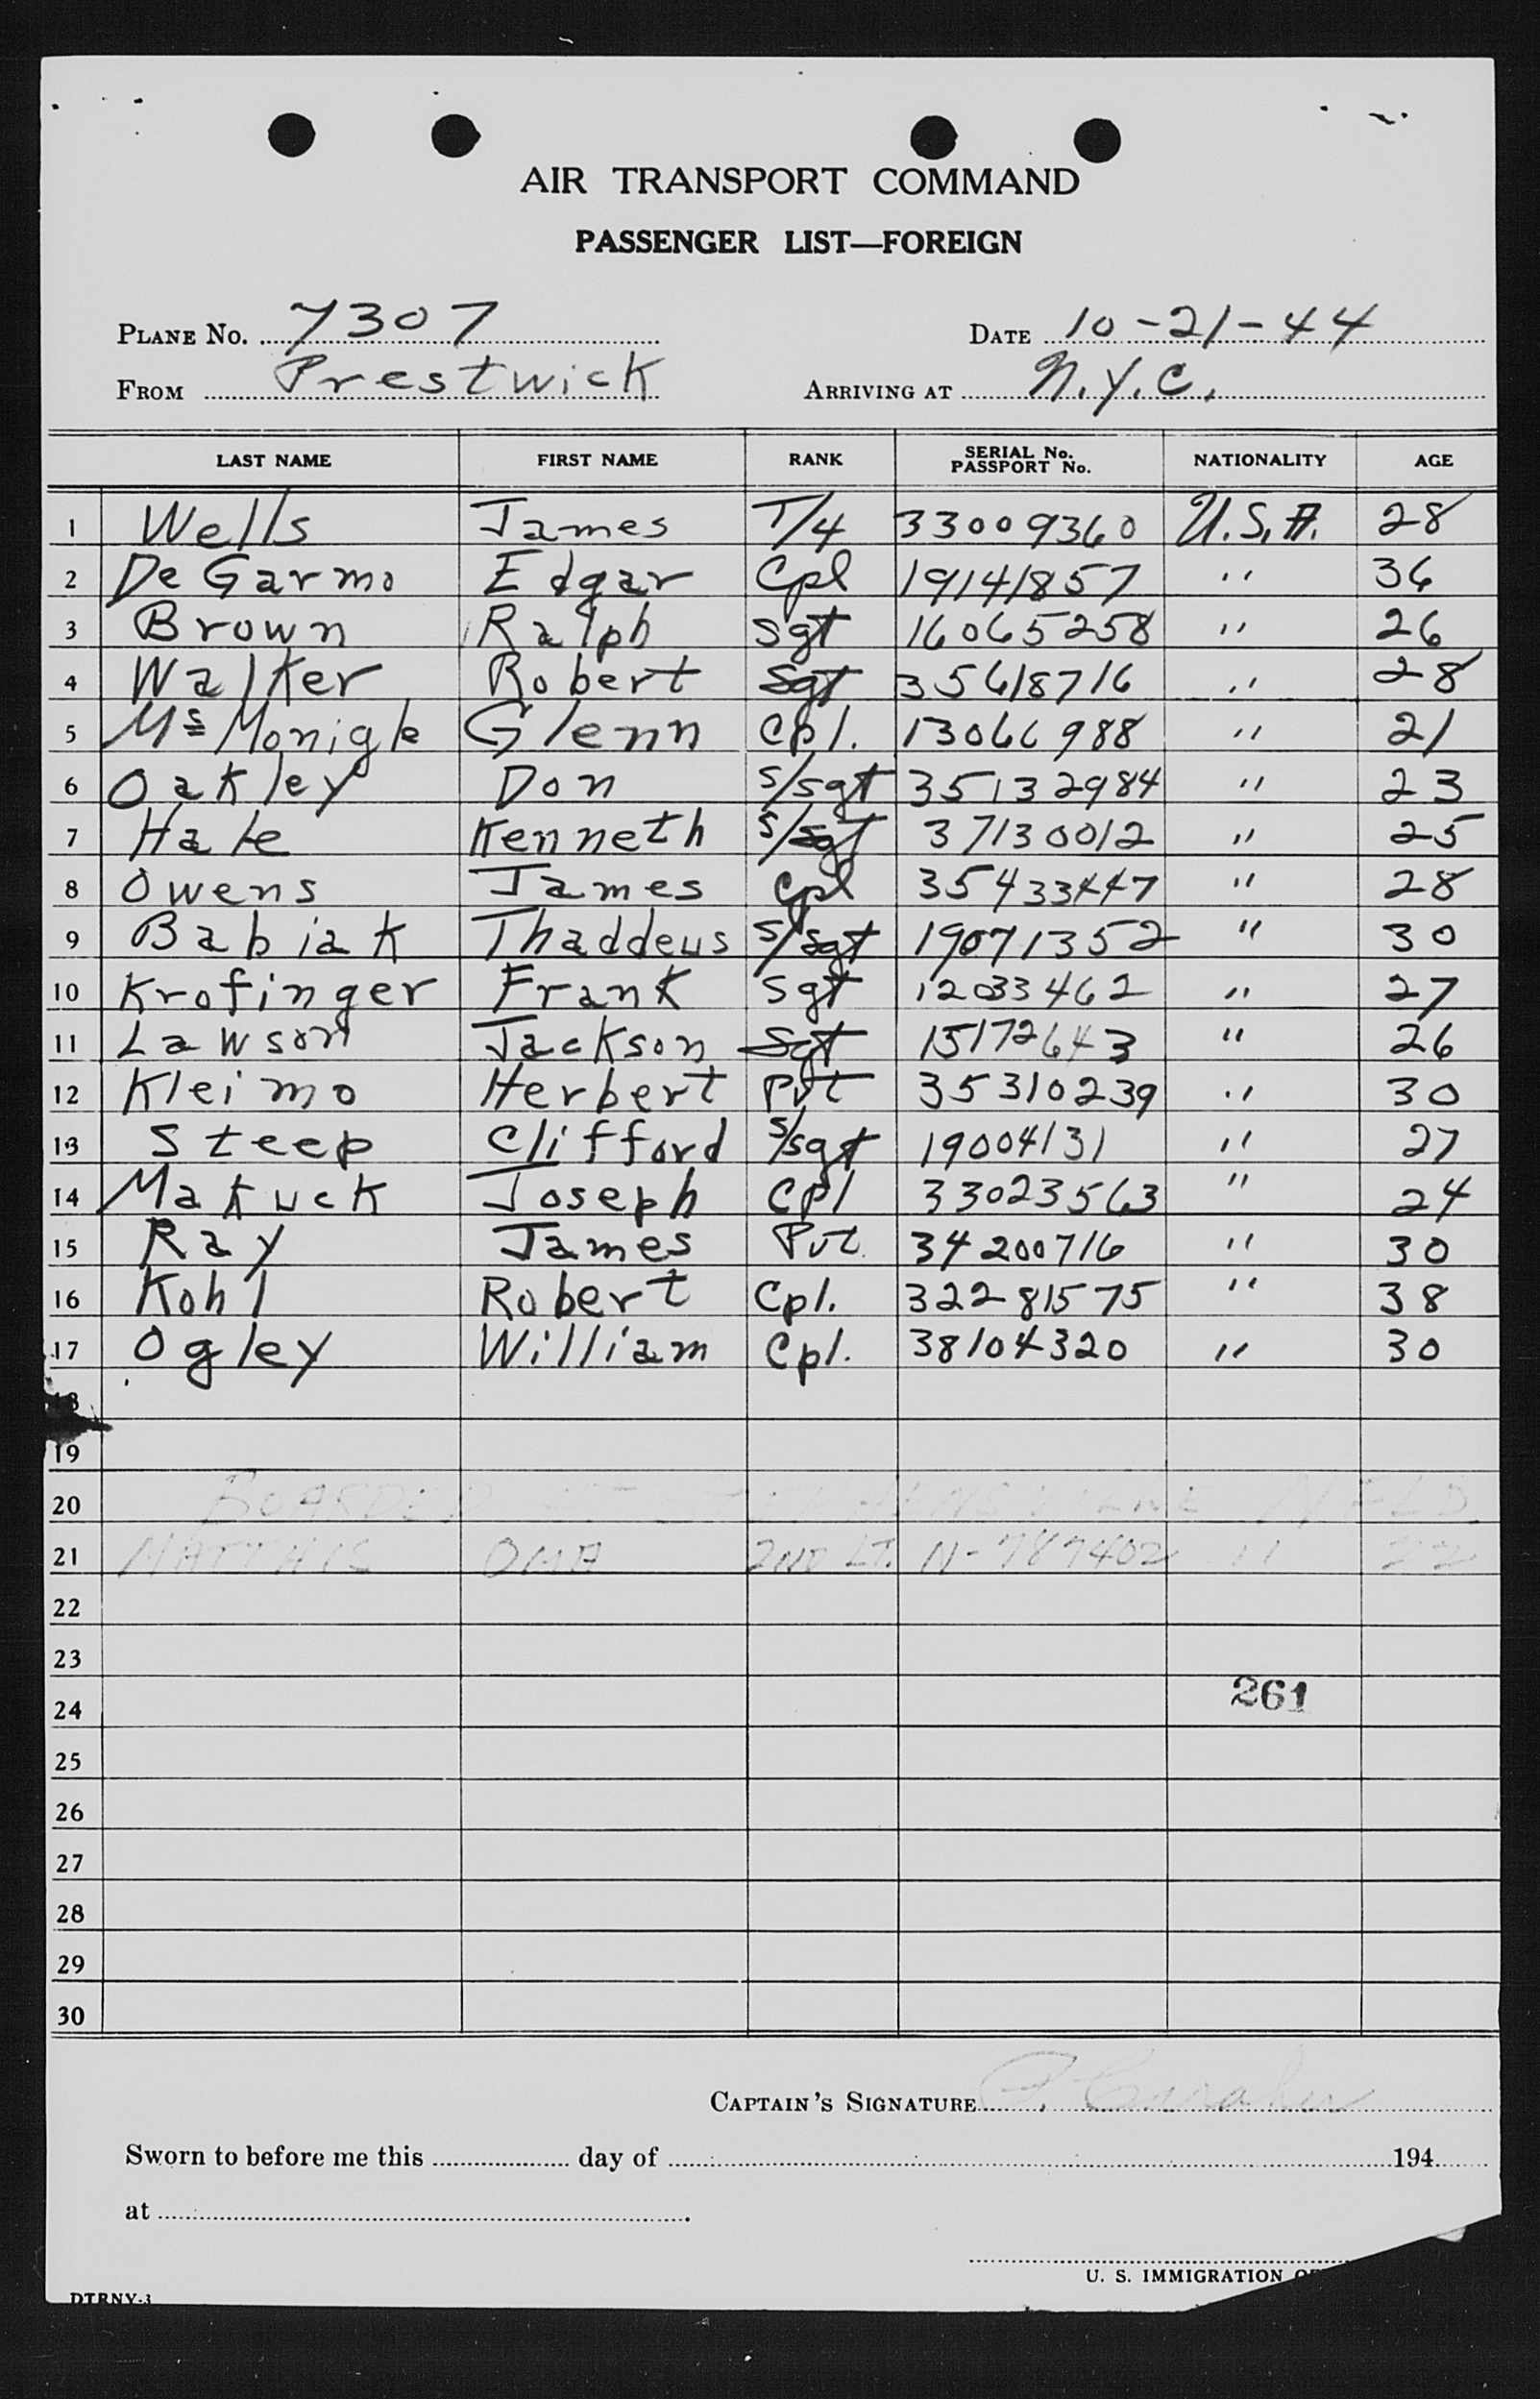 AIR TRANSPORT COMMAND
PASSENGER LIST—FOREIGN
PLANE No. 7307 DATE 10-21-44
FROM Prestwick ARRIVING AT N.Y.C.
LAST NAME FIRST NAME RANK SERIAL No. PASSPORT No. NATIONALITY AGE
1 Wells James T/4 33009360 U.S.A. 28
2 De Garmo Edgar Cpl 19141857 " 36
3 Brown Ralph Sgt 16065258 " 26
4 Walker Robert Sgt 35618716 " 28
5 Mc Monigle Glenn Cpl. 13066988 " 21
6 Oakley Don S/Sgt 35132984 " 23
7 Hale Kenneth S/Sgt 37130012 " 25
8 Owens James Cpl 35433447 " 28
9 Babiak Thaddeus S/Sgt 19071352 " 30
10 Krofinger Frank Sgt 12033462 " 27
11 Lawson Jackson Sgt 15172643 " 26
12 Kleimo Herbert Pvt 35310239 " 30
13 Steep Clifford S/Sgt 19004131 " 27
14 Makuck Joseph Cpl 33023563 " 24
15 Ray James Pvt. 34200716 " 30
16 Kohl Robert Cpl. 32281575 " 38
17 Ogley William Cpl. 38104320 " 30
18
19
20 BOARDED NFLD.
21 MATTHIS OMA 2ND LT. N-787402 " 22
22
23
24 261
25
26
27
28
29
30
CAPTAIN'S SIGNATURE
Sworn to before me this day of 194
at
U. S. IMMIGRATION
DTRNY-3